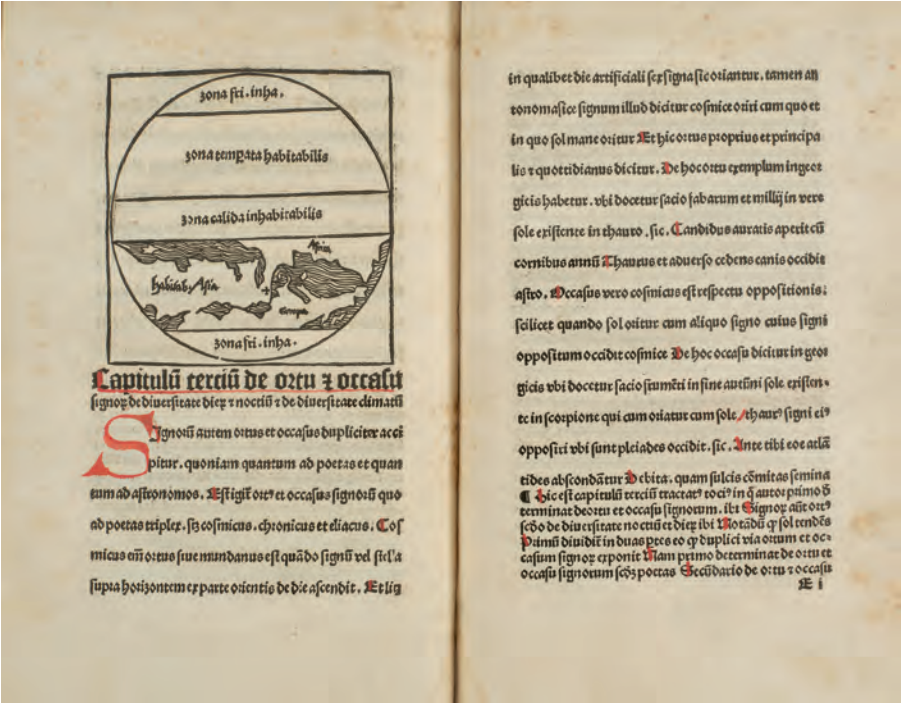 zona fri . inha .
zona temꝑata habitabilis
zona calida inhabitabilis
Africa
habitab, Asia
Europa
zona fri . inha .
Capitulū terciū de ortu ⁊ occasu
signoꝝ de diuersitate dieꝝ ⁊ noctiū ⁊ de diuersitate climatū
Signorū autem ortus et occasus dupliciter acci
pitur . quoniam quantum ad poetas et quan
tum ad astronomos . Est igit̄ ortꝰ et occasus signorū quo
ad poetas triplex . sꝫ cosmicus . chronicus et eliacus . Cos
micus em̄ ortus siue mundanus est quādo signū vel stel'a
supra horizontem ex parte orientis de die ascendit . Et lꝫ
in qualibet die artificiali sex signa sic oriantur . tamen an
tonomasice signum illud dicitur cosmice oriri cum quo et
in quo sol mane oritur Et hic ortus proprius et principa
lis ⁊ quottidianus dicitur . De hoc ortu exemplum in geor
gicis habetur . vbi docetur sacio fabarum et millij in vere
sole existente in thauro . sic . Candidus auratis aperit cū
cornibus annū Thaurus et aduerso cedens canis occidit
astro . Occasus vero cosmicus est respectu oppositionis :
scilicet quando sol oritur cum aliquo signo cuius signi
oppositum occidit cosmice De hoc occasu dicitur in geor
gicis vbi docetur sacio frumēti in fine autūni sole existen-
te in scorpione qui cum oriatur cum sole / thaurꝰ signi eiꝰ
oppositi vbi sunt pleiades occidit . sic . Ante tibi eoe atlā
tides abscondātur Debita . quam sulcis cōmitas semina
¶ Hic est capitulū terciū tractatꝰ tociꝰ in q̄ autor primo ꝺ̄
terminat de ortu et occasu signorum . ibi Signoꝝ aūt ortꝰ
scḋo de diuersitate noctiū et dieꝝ ibi Notādū ꝙ sol tendēs
Primū diuidit̄ in duas ꝑtes eo ꝙ duplici via ortum et oc-
casum signoꝝ exponit Nam primo determinat de ortu et
occasu signorum scḋꝫ poetas Secūdario de ortu ⁊ occasu
E i